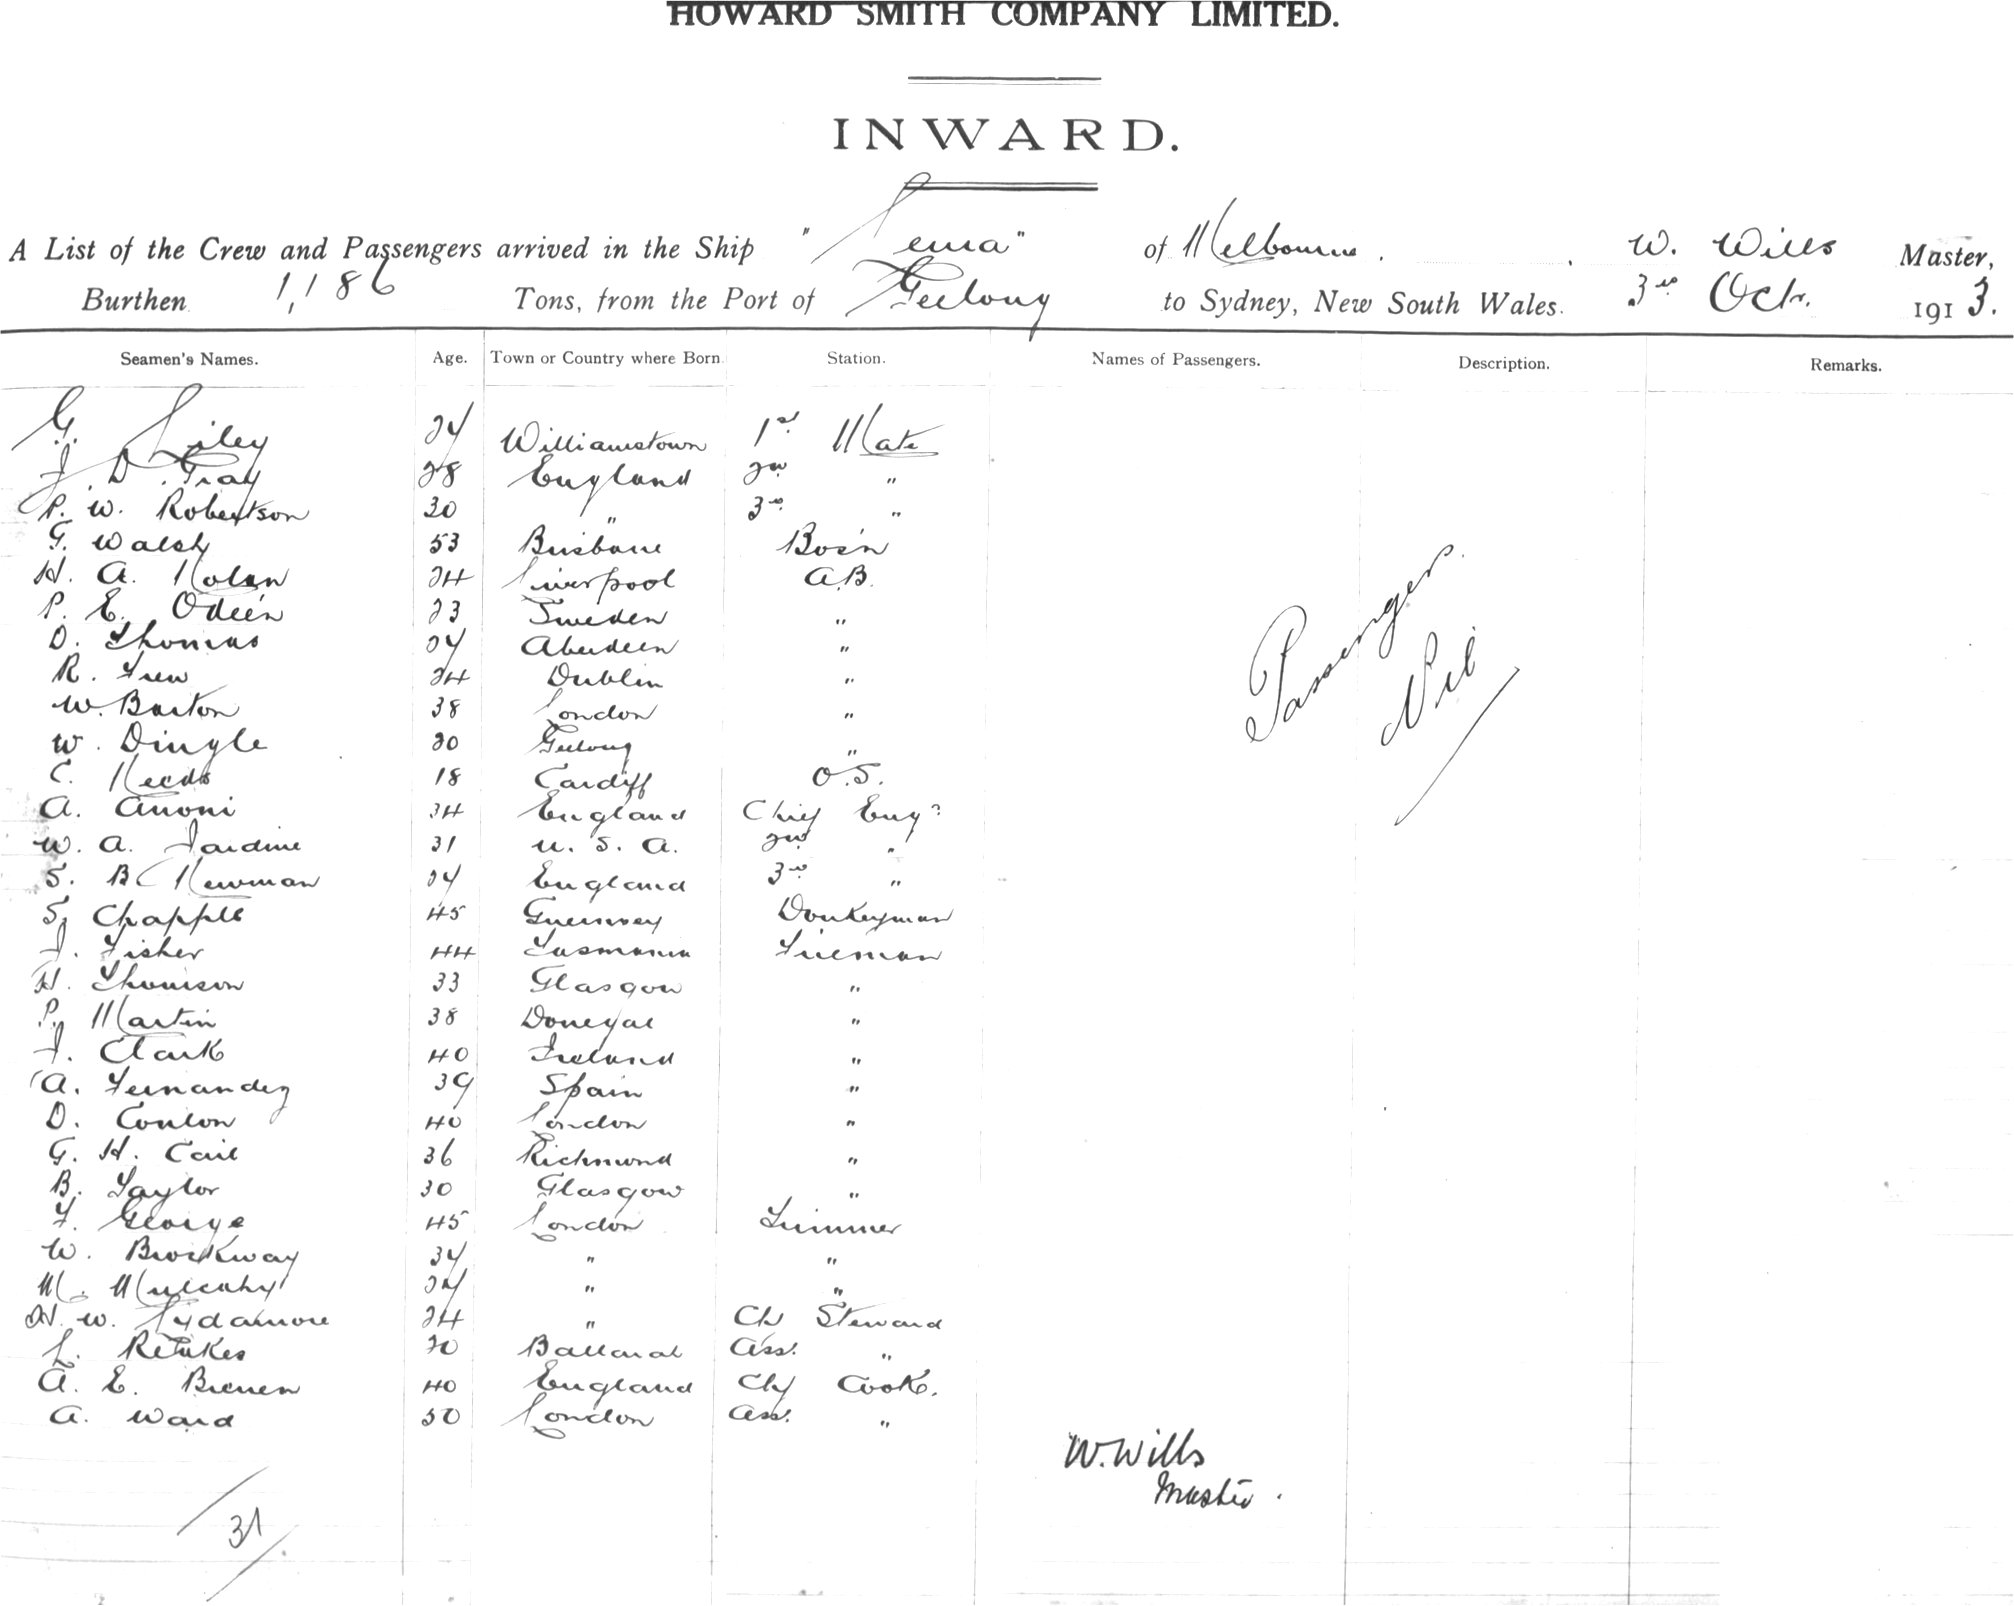 HOWARD SMITH COMPANY LIMITED.
INWARD.
A List of the Crew and Passengers arrived in the Ship " " of Melbourne. W. Wills Master,
Burthen 1,186 Tons, from the Port of Geelong to Sydney, New South Wales. 3rd Oct. 1913.
Seamen's Names. Age. Town or Country where Born. Station. Names of Passengers. Description. Remarks.
G. Liley Williamstown 1st Mate
J. D. Gray 28 England 2nd "
P. W. Robertson 30 " 3rd "
G. Walsh 53 Brisbane Bos'n
H. A. Nolan 24 Liverpool A.B.
P. E. Odeén 23 Sweden "
D. Thomas Aberdeen "
R. Frew 24 Dublin "
W. Barton 38 London "
W. Dingle Geelong "
C. 18 Cardiff O.S.
A. Anoni 34 England Chief Engr
W. A. Jardine 31 U. S. A. 2nd "
S. B. Newman England 3rd "
S. Chapple 45 Guernsey Donkeyman
J. Fisher 44 Tasmania Fireman
H. Thomson 33 Glasgow "
P. Martin 38 Donegal "
J. Clark 40 Ireland "
A. Fernandez 39 Spain "
D. Conlon 40 London "
G. H. Cail 36 Richmond "
B. Taylor 30 Glasgow "
F. George 45 London Trimmer
W. Brockway " "
M. Mulcahy " "
W. 24 " Ch Steward
L. Ballarat Ass. "
A. E. 40 England Chf Cook.
A. Ward 50 London Ass. "
Passengers.
Nil
W. Wills
Master.
31